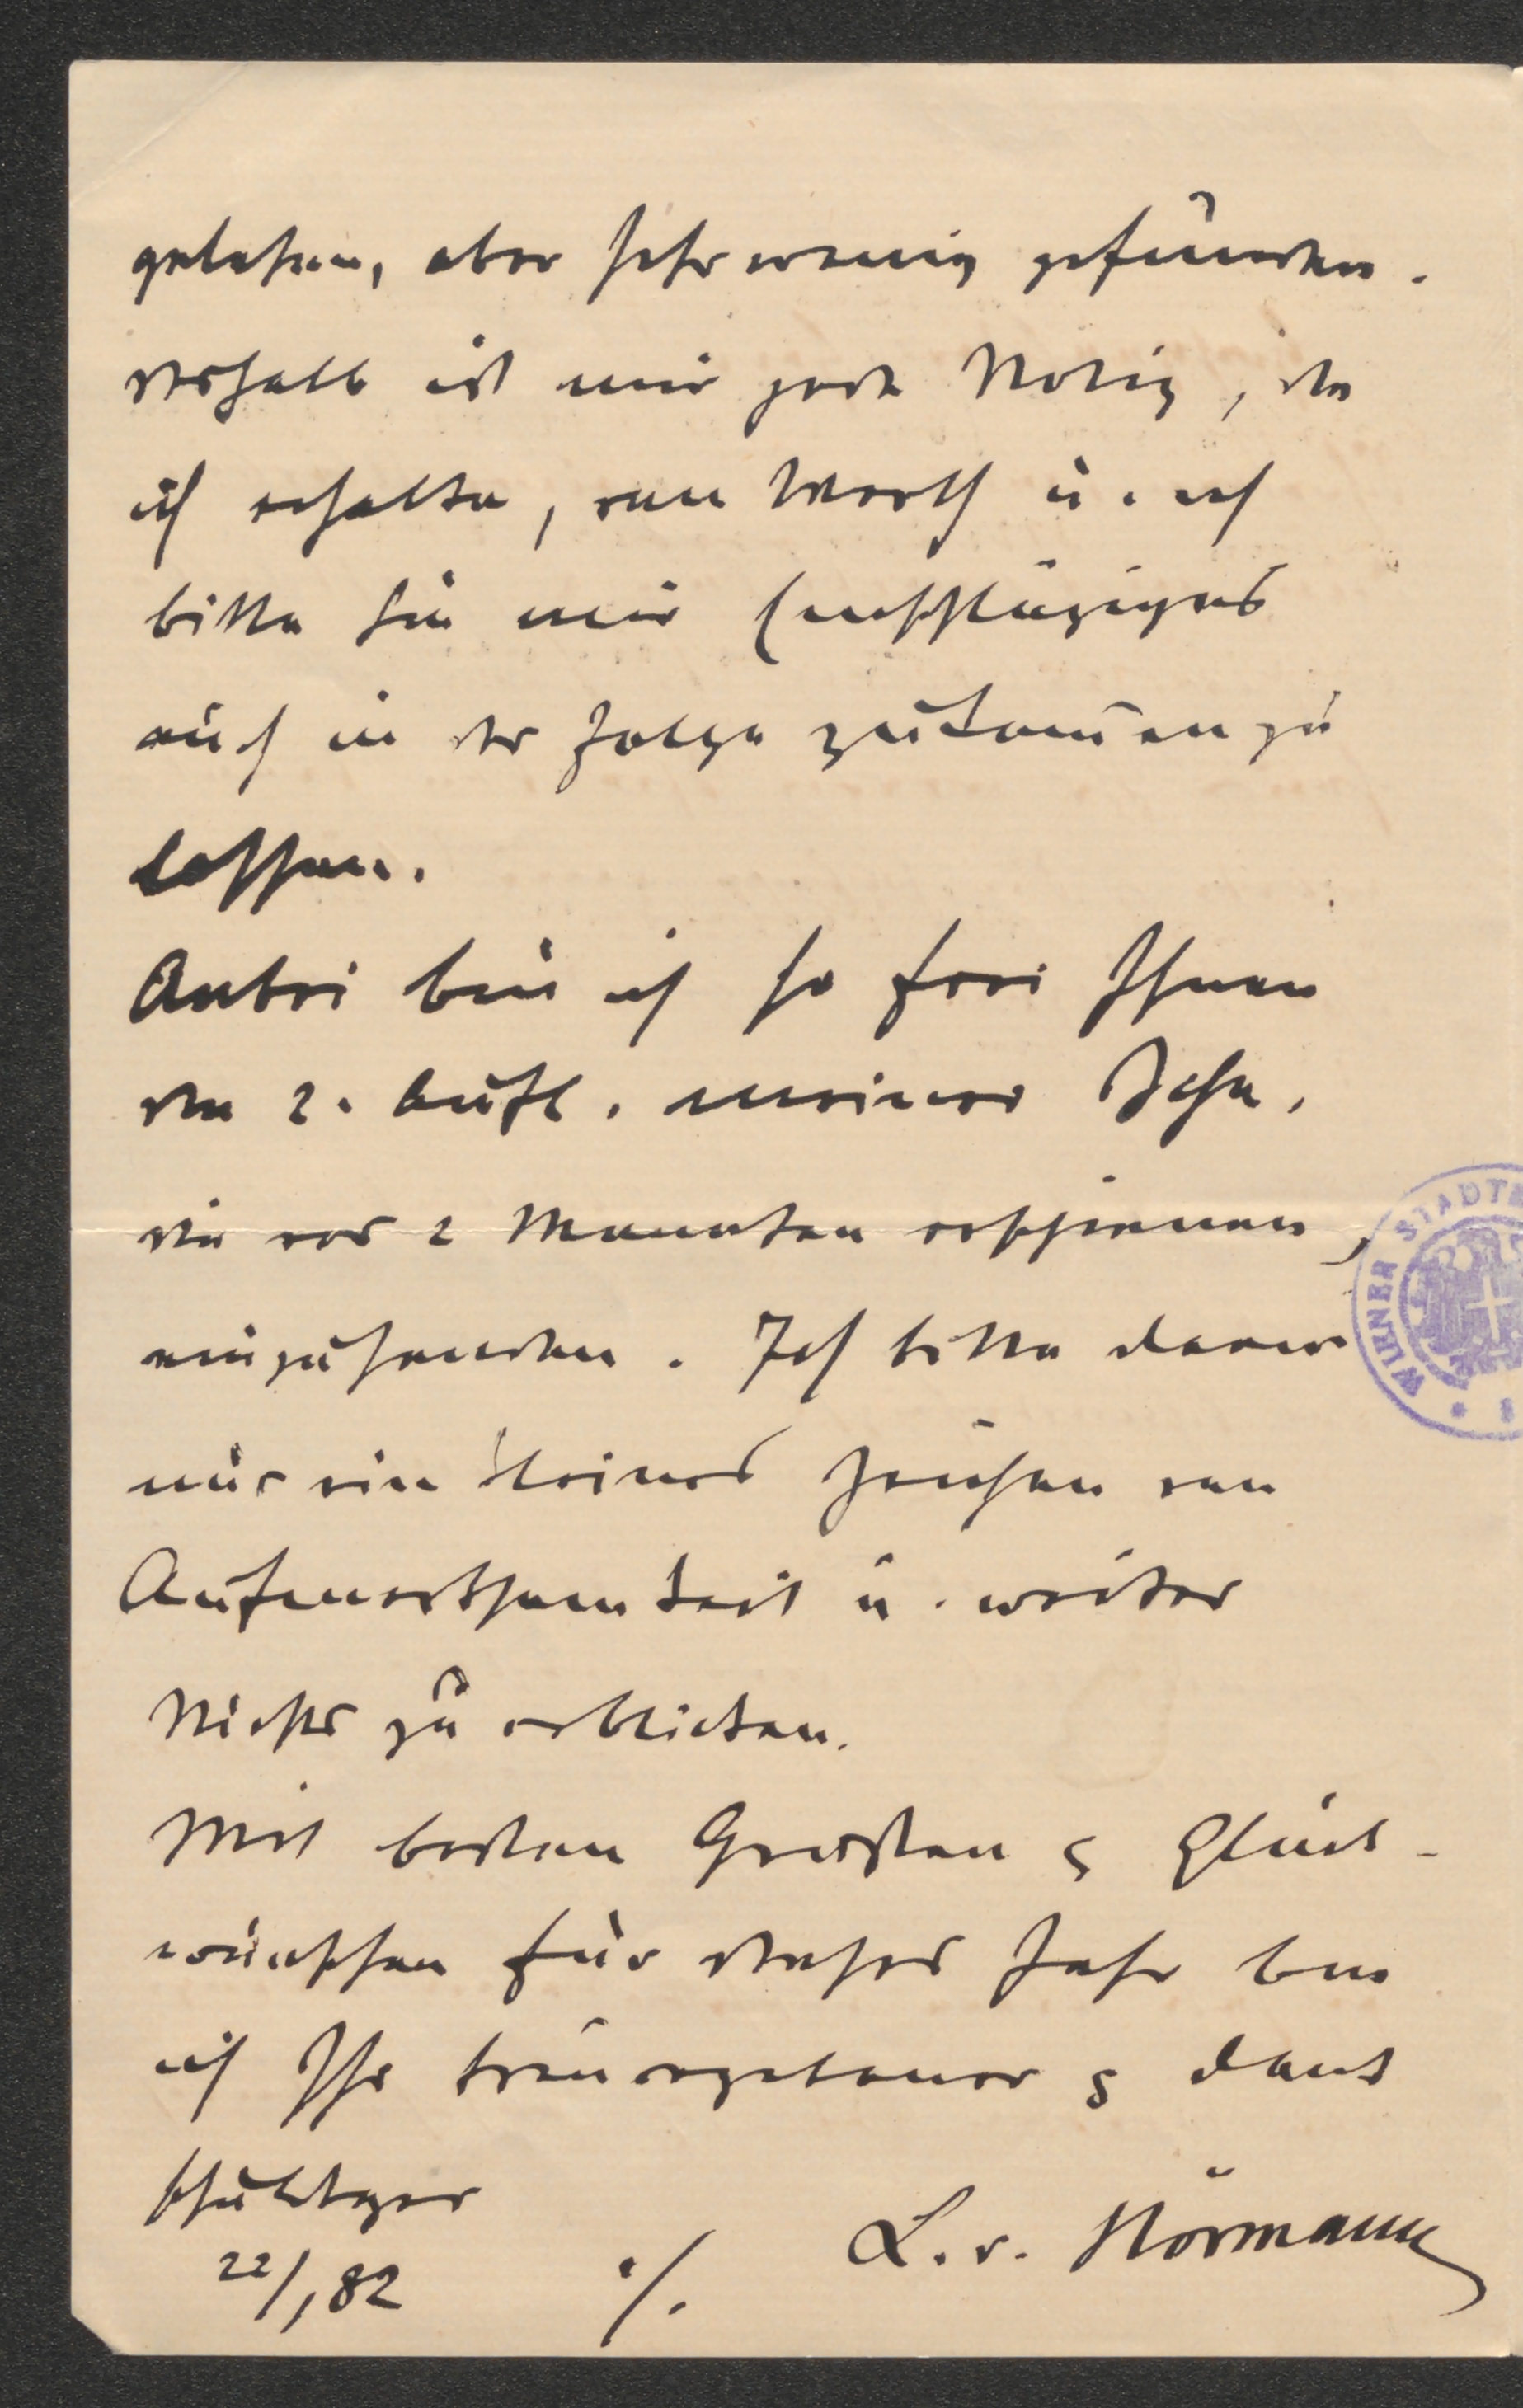 gelesen, aber sehr wenig gefunden.
deshalb ist mir jede Notiz, die
ich erhalte, von Werth u. ich
bitte Sie mir Einschlägiges
auch in der Folge zukommen zu
lassen.
Anbei bin ich so frei Ihnen
die 2. Aufl. meiner
die vor 2 Monaten erschienen,
einzusenden. Ich bitte darin
nur ein kleines Zeichen von
Aufmerksamkeit u. weiter
Nichts zu erblicken.
Mit besten Grüssen & Glück-
wünschen für dieses Jahr bin
ich Ihr treuergebener & dank
schuldiger
22/1 82 ./. L. v. Hörmann
WIENER STADT